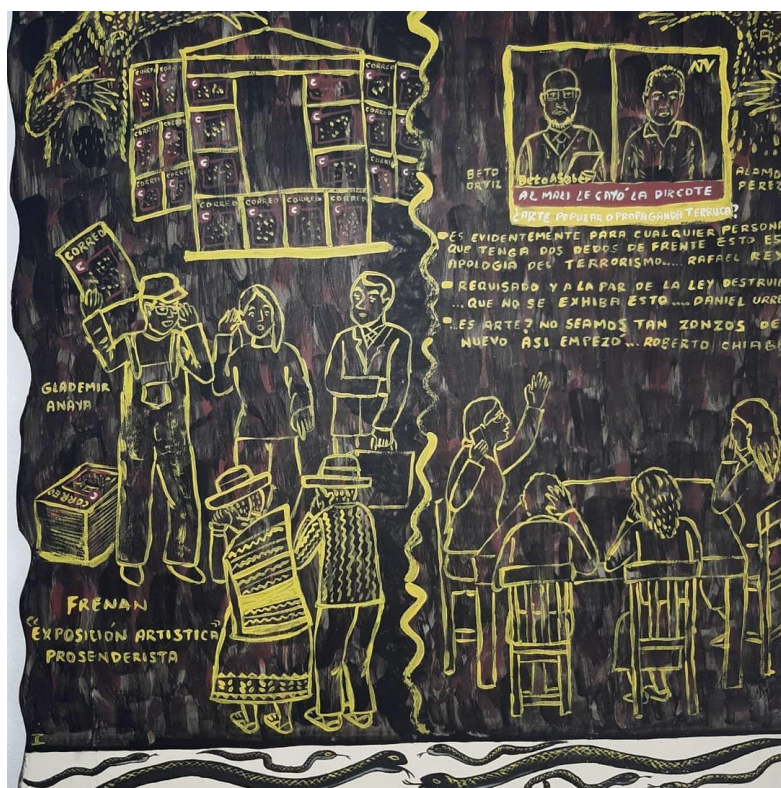 CORREO
CORREO
CORREO
CORREO
CORREO
CORREO
CORREO
CORREO
CORREO CORREO CORREO CORREO
CORREO
GLADEMIR
ANAYA
CORREO
FRENAN
"EXPOSICIÓN ARTISTICA"
PROSENDERISTA
I
ATV
BETO
ORTIZ
Beto A Saber
AL MALI LE CAYÓ LA DIRCOTE
¿ARTE POPULAR O PROPAGANDA TERRUCA?
ALAMO
PERE
ES EVIDENTEMENTE PARA CUALQUIER PERSONA
QUE TENGA DOS DEDOS DE FRENTE ESTO ES
APOLOGIA DEL TERRORISMO.... RAFAEL REY
REQUISADO Y A LA PAR DE LA LEY DESTRUI
...QUE NO SE EXHIBA ESTO .... DANIEL URR
..ES ARTE? NO SEAMOS TAN ZONZOS DE
NUEVO ASI EMPEZÓ... ROBERTO CHIAB